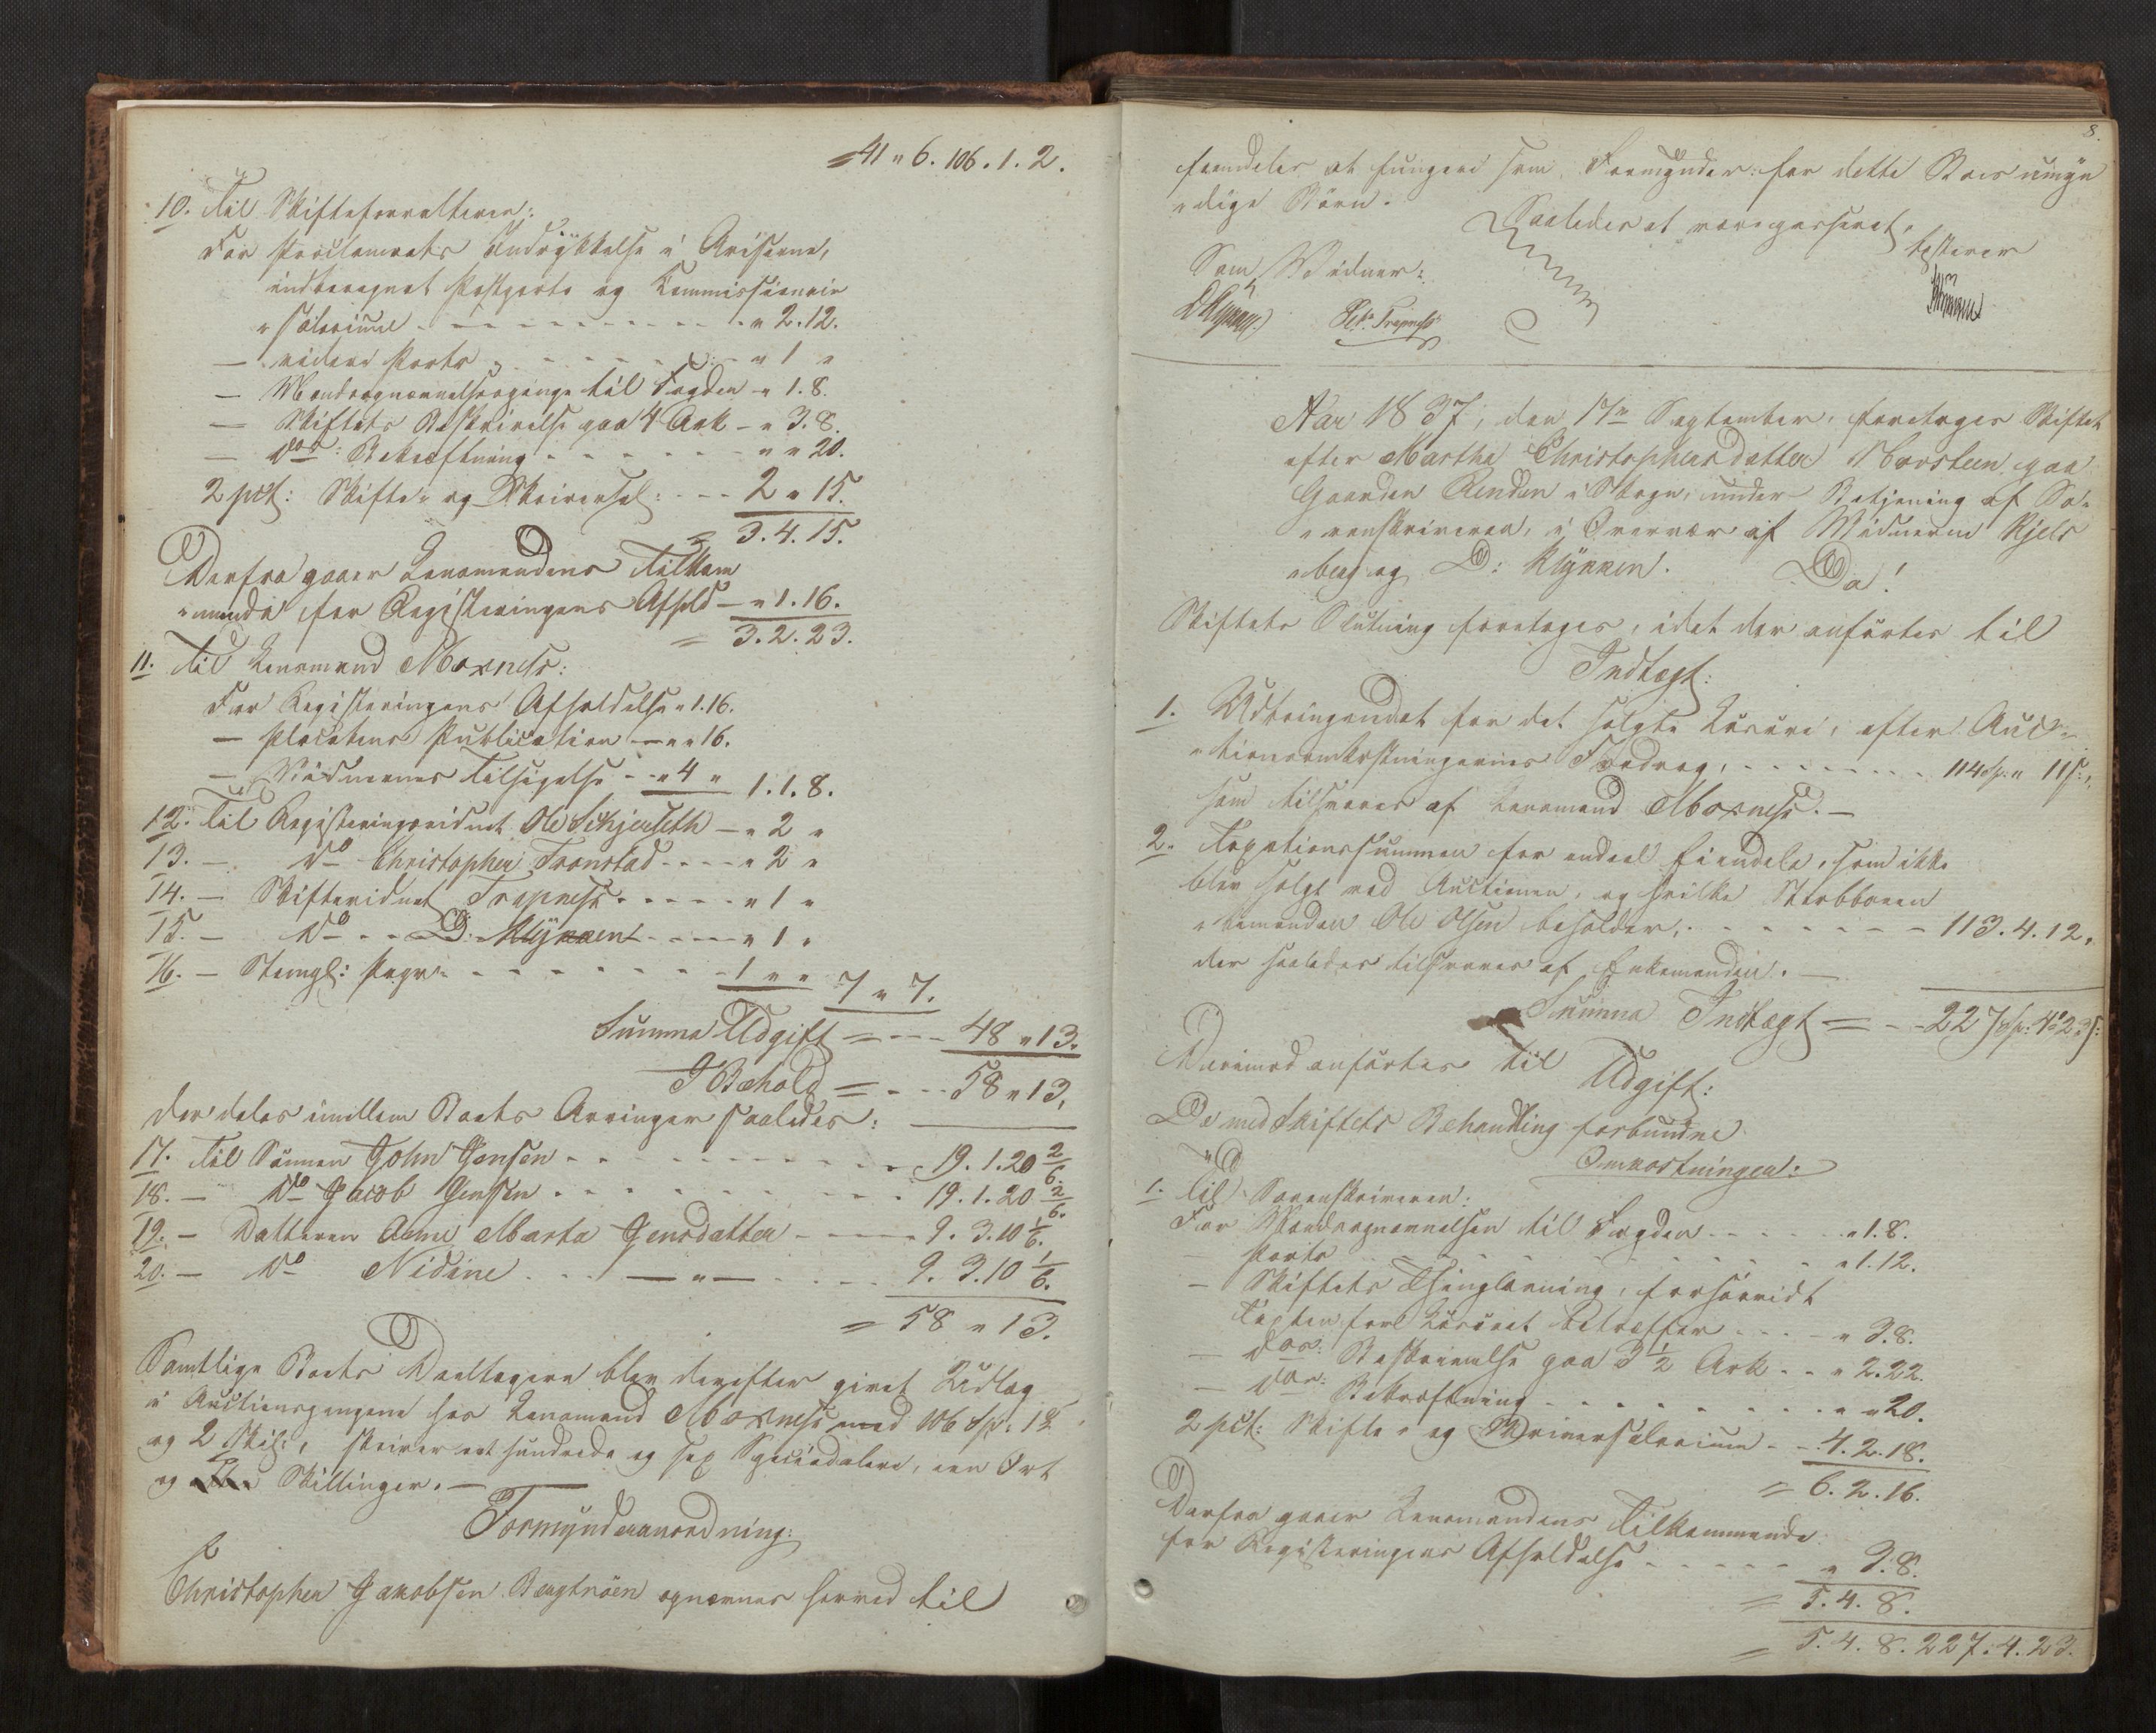 = 41 " 6. 106. 1. 2.
10. Til Skifteforvalteren:
For Proclamats Indrykkelse i Aviserne,
indberegnet Postporto og Commissionair
" salarium - - - - - " 2. 12.
— videre Porto - - - - - " 1 "
— Mændsopnævnelsespenge til Fogden - " 1. 8.
— Skiftets Beskrivelse paa 4 Ark - " 3. 8.
— Do: Bekræftning - - - - - " " 20.
2 pct: Skifte- og Skriversal: - - - 2 " 15.
= 3. 4. 15.
Derfra gaaer Lensmandens Tilkom
" mende for Registeringens Afhold — " 1. 16.
= 3. 2. 23.
11. Til Lensmand Moxness:
For Registeringens Afholdelse " 1. 16.
— Placatens Publication — " " 16.
— Vidnernes Tilsigelse - - " 4 " 1. 1. 8.
12. Til Registeringsvidnet Ole Schjerseth — " 2 "
13. — Do Christopher Tronstad - - - - " 2 "
14. — Skiftevidnet Trapness - - - - - " 1 "
15. — Do - - D. Klykken - - - - " 1 "
16. — Stempl: Papir - - - - - - 1 " " 7 " 7.
Summa Udgift = - - - 48 " 13.
I Behold = - - - 58 " 13,
der deles imellem Boets Arvinger saaledes:
17. Til Sønnen John Jensen - - - - - 19. 1. 20 2/6.
18. — Do Jacob Jensen - - - - - 19. 1. 20 2/6.
19. — Datteren Anne Marta Jensdatter - - - 9. 3. 10 1/6.
20. — Do Nidine - - — " — - - - 9. 3. 10 1/6.
= 58 " 13.
Samtlige Boets Deeltagere blev derefter givet Udlæg
i Auctionspengene hos Lensmand Moxness med 106 Sp: 1
og 2 Skil:, skriver eet hundrede og sex Speciedalere, een Ort
og Skillinger. —
Formynderanordning:
Christopher Jakobsen Bergtrøen opnævnes herved til
8.
fremdeles at fungere som Formynder for dette Boes umyn
" dige Børn.
Saaledes at være passeret,
testerer
Som Vidner:
D Klykken. Trapness
Aar 1837, den 17n September, foretoges Skiftet
efter Martha Christophersdatter Norsteen paa
Gaarden Renden i Stogn, under Betjening af So-
" renskriveren, i Overvær af Vidnerne Kjels
" berg og D: Klykken. Da!
Skiftets Slutning foretoges, idet der anførtes til
Indtægt:
1. Udbringendet for det solgte Løsøre, efter Auc-
" tionsomkostningernes Fradrag, - - - - - 114 Sp: " 11 s:,
som tilsvares af Lensmand Moxness. —
2. Taxationssummen for endeel Eiendele, som ikke
blev solgt ved Auctionen, og hvilke Stervboens
" bemanden Ole Olsen beholder, - - - - - 113. 4. 12,
der saaledes tilsvares af Enkemanden. —
Summa Indtægt = - - 227 Sp: 4 23 s:
Derimod anførtes til
Udgift:
De med Skiftets Behandling forbundne
Omkostninger:
1. Til Sorenskriveren:
For Mændsopnævnelsen til Fogden - - - - - " 1. 8.
Porto - - - - - " 1. 12.
— Skiftets Thinglæsning, forsaavidt
Tægten forl Løsøret betræffer - - - - " 3. 8.
— Do: Beskrivelse paa 3 1/2 Ark - - " 2. 22.
— Do: Bekræftning - - - - - " " 20.
2 pct: Skifte- og Skriversalarium - - 4. 2. 18.
= 6. 2. 16.
Derfra gaaer Lensmandens Tilkommende
for Registeringens Afholdelse - - - - - " 3. 8.
= 5. 4. 8.
= 5. 4. 8. 227. 4. 23.